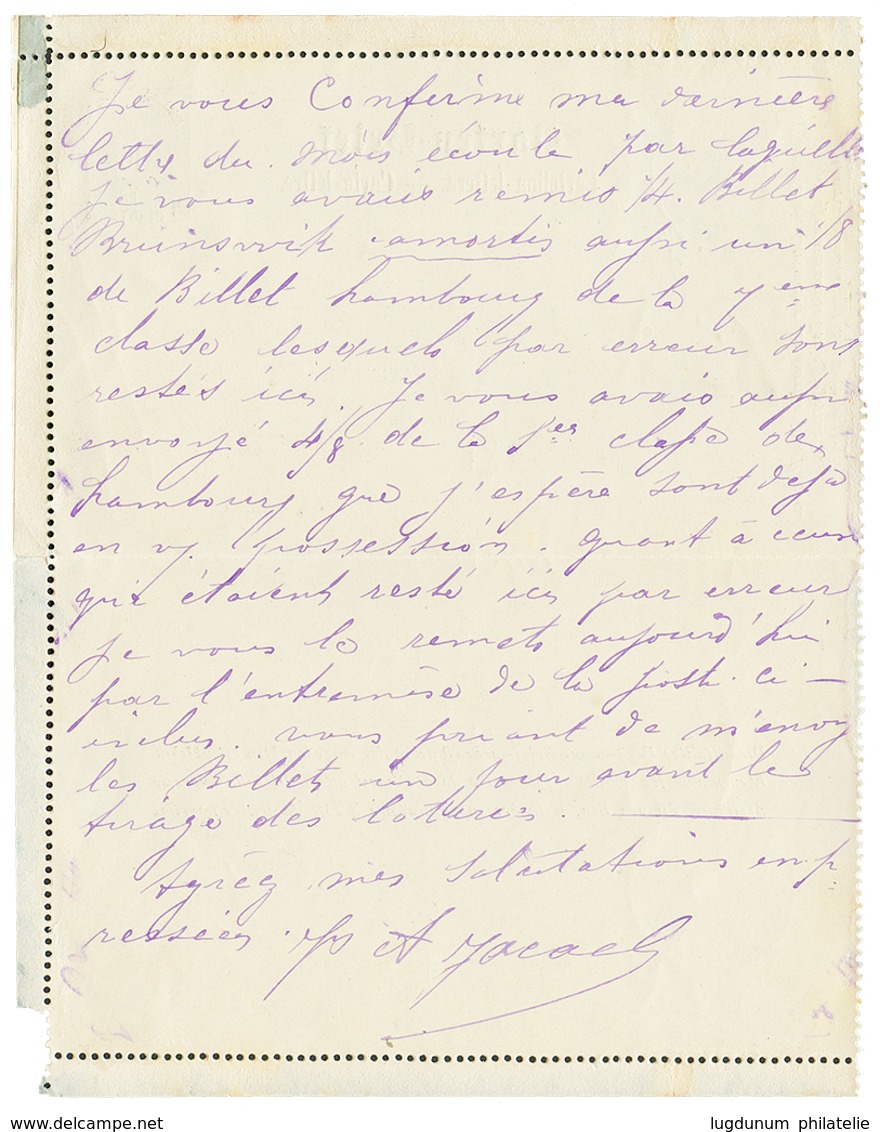 Je vous Confirme ma derniere
lettre du mois écoulé par laquelle
Je vous avais remis 1/4. Billet
Brunswik amortis aussi un 1/8
de Billet hambourg de la 7eme
classe lesquels par erreur sont
restés ici. Je vous avais aussi
envoyé 4/8 de la 1er classe de
hambourg que j'espère sont déjà
en v/. possession. quant à ceux
qui étaient resté ici par erreur
Je vous le remets aujourd'hui
par l'entremise de la poste ci-
inclus. vous priant de m'envoy
les Billets un jour avant le
tirage des loteries.
Agréez mes Salutations emp
ressées.
delcampe.net/lacame
lugdunum philatelie